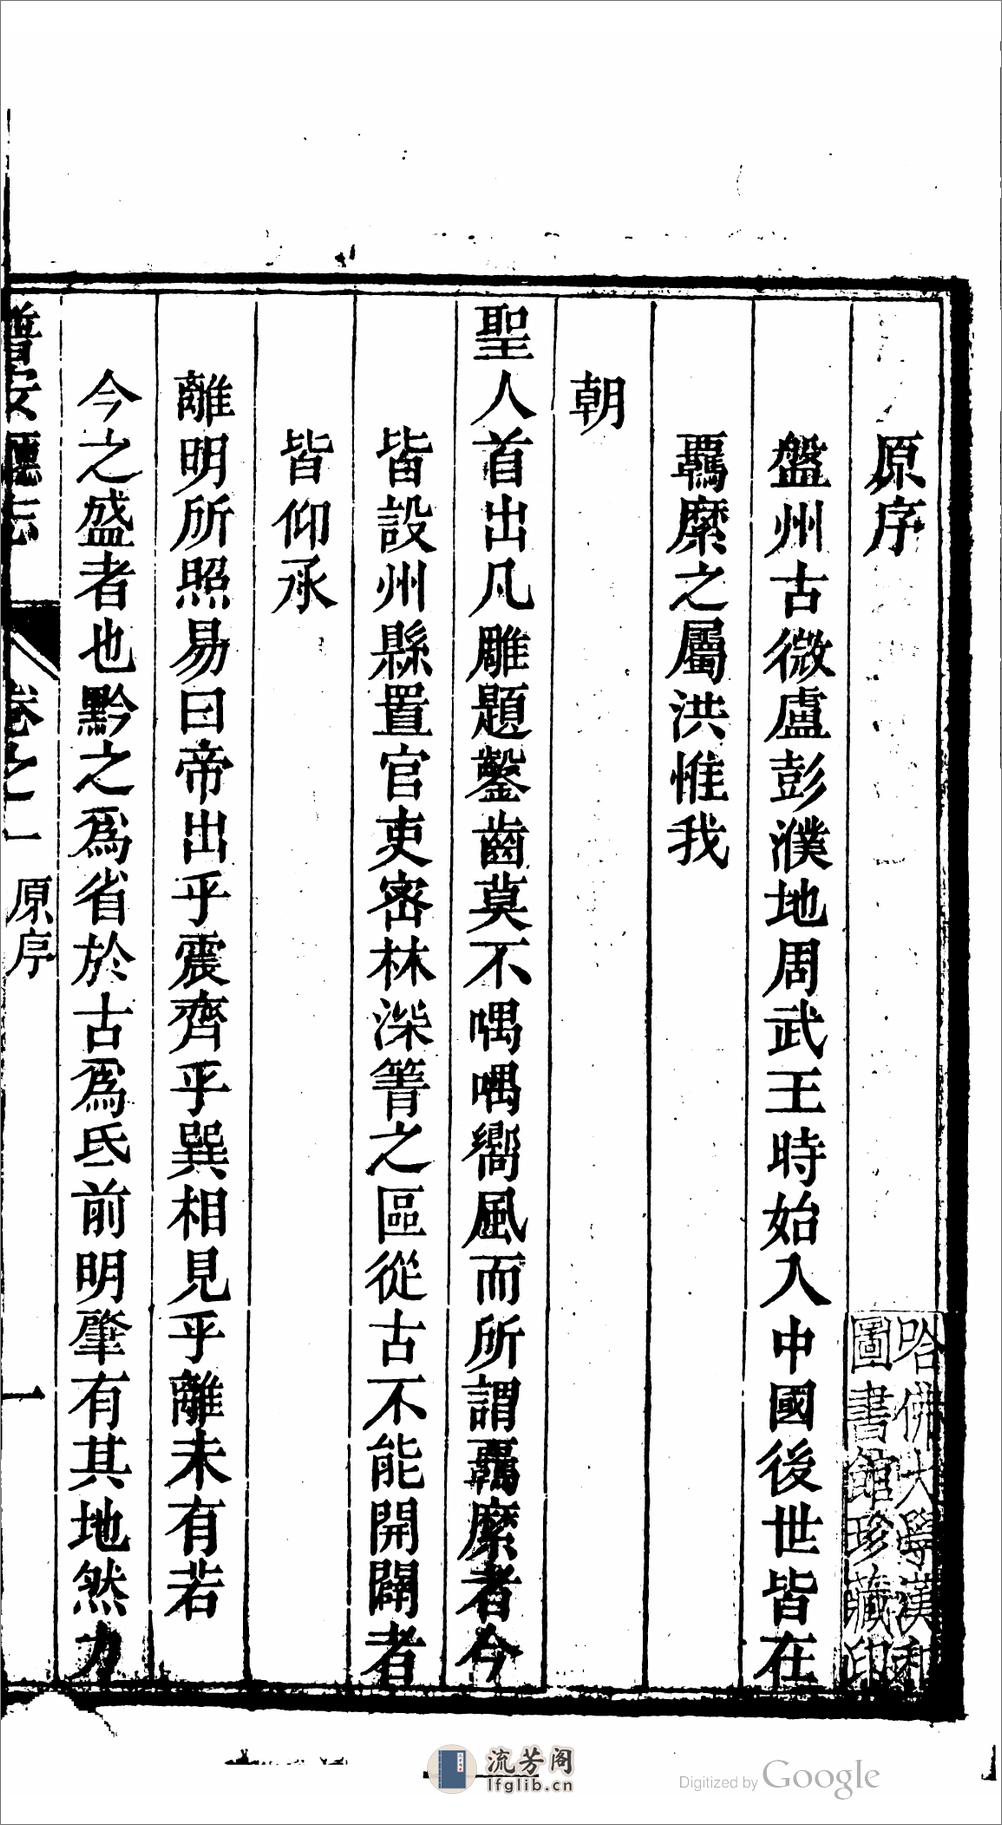 原序
盤州古微盧彭濮地周武王時始入中國後世皆在
羈縻之屬洪惟我
朝
聖人首出凡雕題鑿齒莫不喁喁嚮風而所謂羈縻者今
皆設州縣置官吏密林深箐之區從古不能開闢者
皆仰承
離明所照易曰帝出乎震齊乎巽相見乎離未有若
今之盛者也黔之爲省於古爲氐前明肇有其地然力
普安廳志 卷之一 原序 一
哈佛大學漢和
圖書館珍藏印
流芳阁
lfglib.cn
Digitized by Google